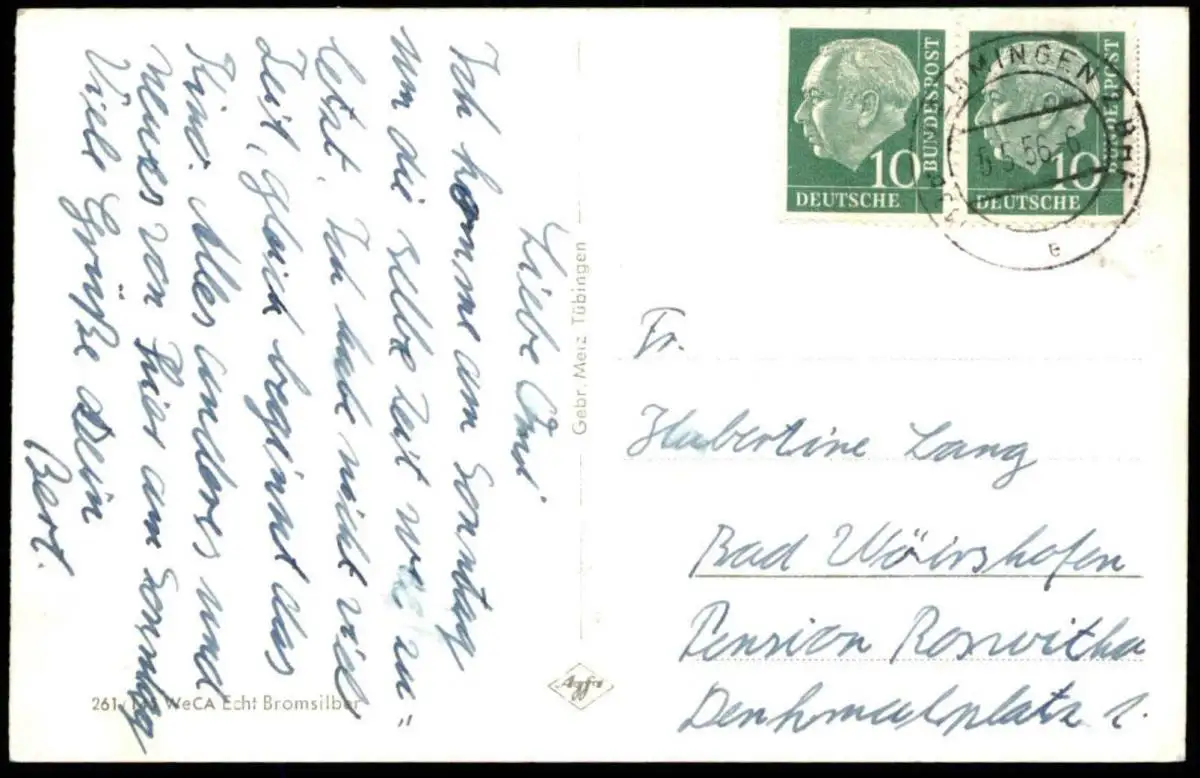 Liebe Omi
Ich komme am Sonntag
um die selbe Zeit wie zu„
letzt. Ich habe nicht viel
Zeit, gleich beginnt das
Kino. Alles andere und
neues von hier am Sonntag
Viele Grüße Dein
Bert.
Gebr. Metz Tübingen
Agfa
WeCA Echt Bromsilber
10
BUNDESPOST
DEUTSCHE
10
BUNDESPOST
DEUTSCHE
MMINGEN BHF
5.5.56-6
e
Fr.
Hubertine Lang
Bad Wörishofen
Pension Roswitha
Denkmalplatz 1.